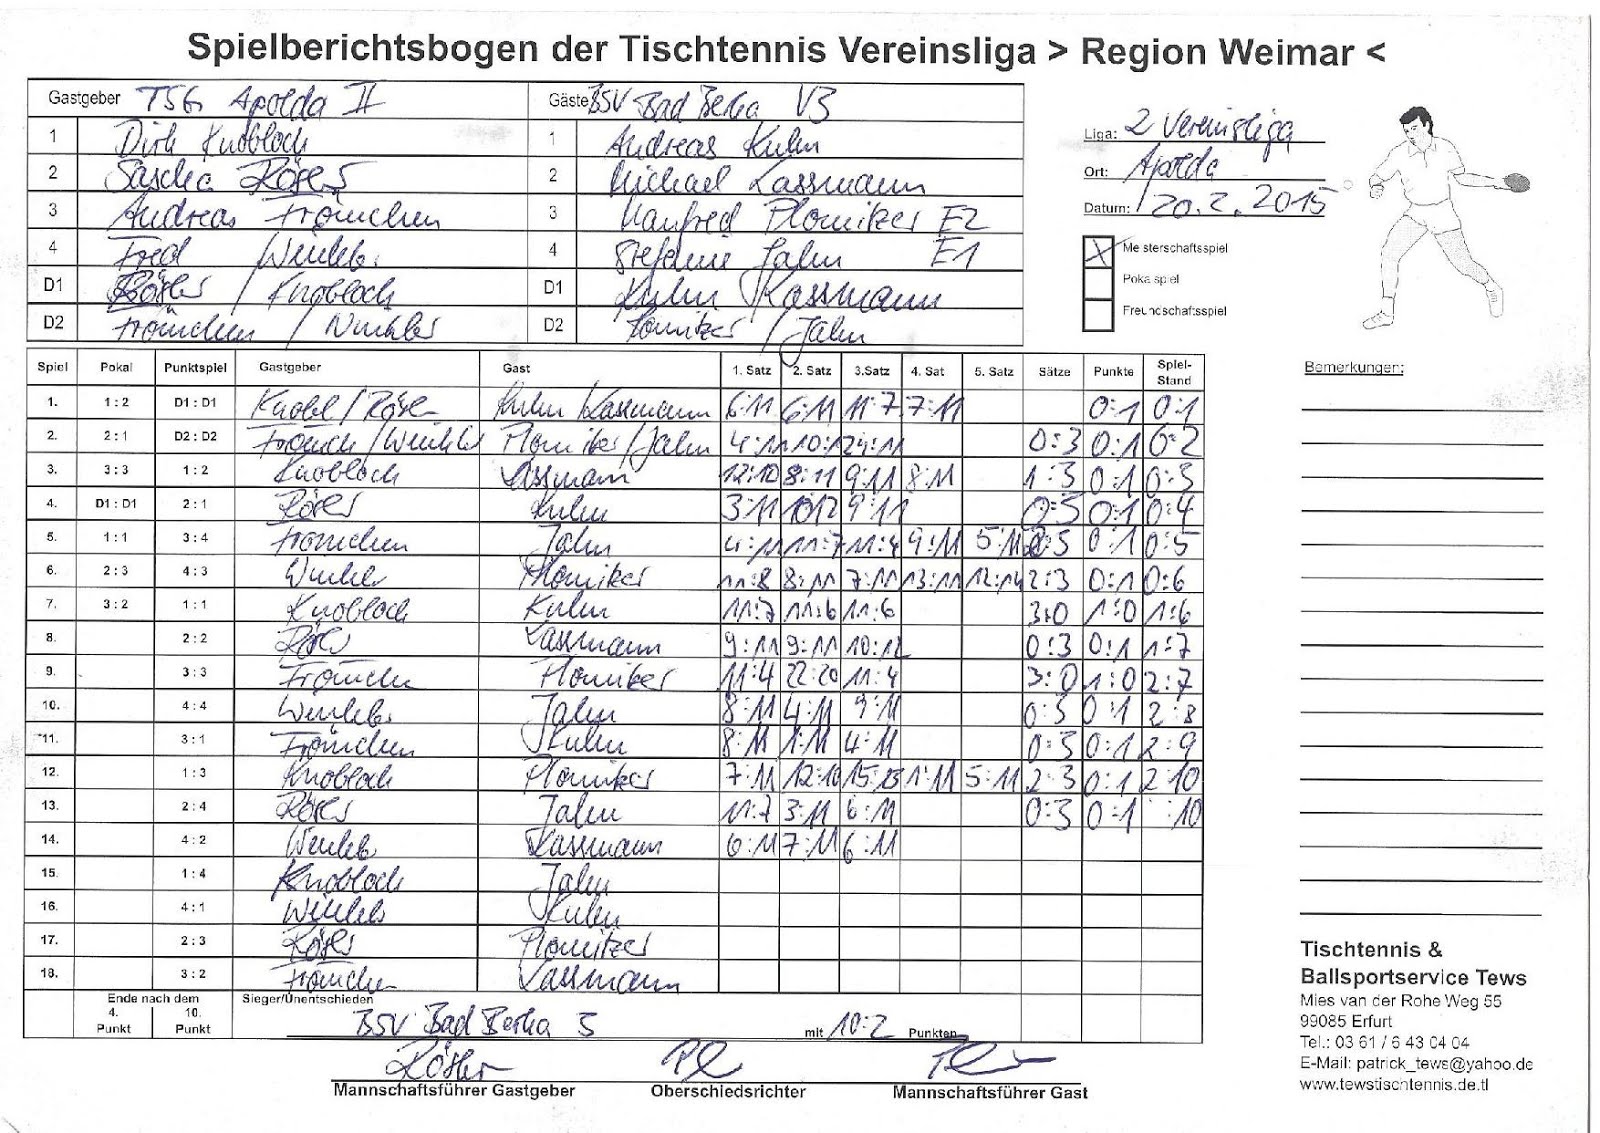 Spielberichtsbogen der Tischtennis Vereinsliga > Region Weimar <
Gastgeber TSG Apolda II Gäste BSV Bad Berka V3
1 Dirk Knobloch 1 Andreas Kuhn
2 Sascha Rösler 2 Michael Kassmann
3 Andreas Frömchen 3 Manfred Plomitzer E2
4 Fred Winkler 4 Stefanie Jahn E1
D1 Rösler / Knobloch D1 Kuhn / Kassmann
D2 Frömchen / Winkler D2 Plomitzer / Jahn
Liga: 2 Vereinsliga
Ort: Apolda
Datum: 20.2.2015
X Meisterschaftsspiel
Pokalspiel
Freundschaftsspiel
Spiel Pokal Punktspiel Gastgeber Gast 1. Satz 2. Satz 3.Satz 4. Sat 5. Satz Sätze Punkte Spiel-Stand
1. 1:2 D1:D1 Knobl/Rösler Kuhn/Kassmann 6:11 6:11 11:7 7:11 0:1 0:1
2. 2:1 D2:D2 Frömch/Winkler Plomitzer/Jahn 4:11 10:12 9:11 0:3 0:1 0:2
3. 3:3 1:2 Knobloch Kassmann 12:10 8:11 9:11 8:11 1:3 0:1 0:3
4. D1:D1 2:1 Rösler Kuhn 3:11 10:12 9:11 0:3 0:1 0:4
5. 1:1 3:4 Frömchen Jahn 4:11 11:7 11:4 9:11 5:11 2:3 0:1 0:5
6. 2:3 4:3 Winkler Plomitzer 11:8 8:11 7:11 13:11 12:14 2:3 0:1 0:6
7. 3:2 1:1 Knobloch Kuhn 11:7 11:6 11:6 3:0 1:0 1:6
8. 2:2 Rösler Kassmann 9:11 9:11 10:12 0:3 0:1 1:7
9. 3:3 Frömchen Plomitzer 11:4 22:20 11:4 3:0 1:0 2:7
10. 4:4 Winkler Jahn 8:11 4:11 9:11 0:3 0:1 2:8
11. 3:1 Frömchen Kuhn 8:11 1:11 4:11 0:3 0:1 2:9
12. 1:3 Knobloch Plomitzer 7:11 12:10 15:13 1:11 5:11 2:3 0:1 2:10
13. 2:4 Rösler Jahn 11:7 3:11 6:11 0:3 0:1 :10
14. 4:2 Winkler Kassmann 6:11 7:11 6:11
15. 1:4 Knobloch Jahn
16. 4:1 Winkler Kuhn
17. 2:3 Rösler Plomitzer
18. 3:2 Frömchen Kassmann
Ende nach dem
4. Punkt 10. Punkt
Sieger/Unentschieden
BSV Bad Berka 3 mit 10:2 Punkten
Rösler
Mannschaftsführer Gastgeber Oberschiedsrichter Mannschaftsführer Gast
Bemerkungen:
Tischtennis &
Ballsportservice Tews
Mies van der Rohe Weg 55
99085 Erfurt
Tel.: 03 61 / 6 43 04 04
E-Mail: patrick_tews@yahoo.de
www.tewstischtennis.de.tl